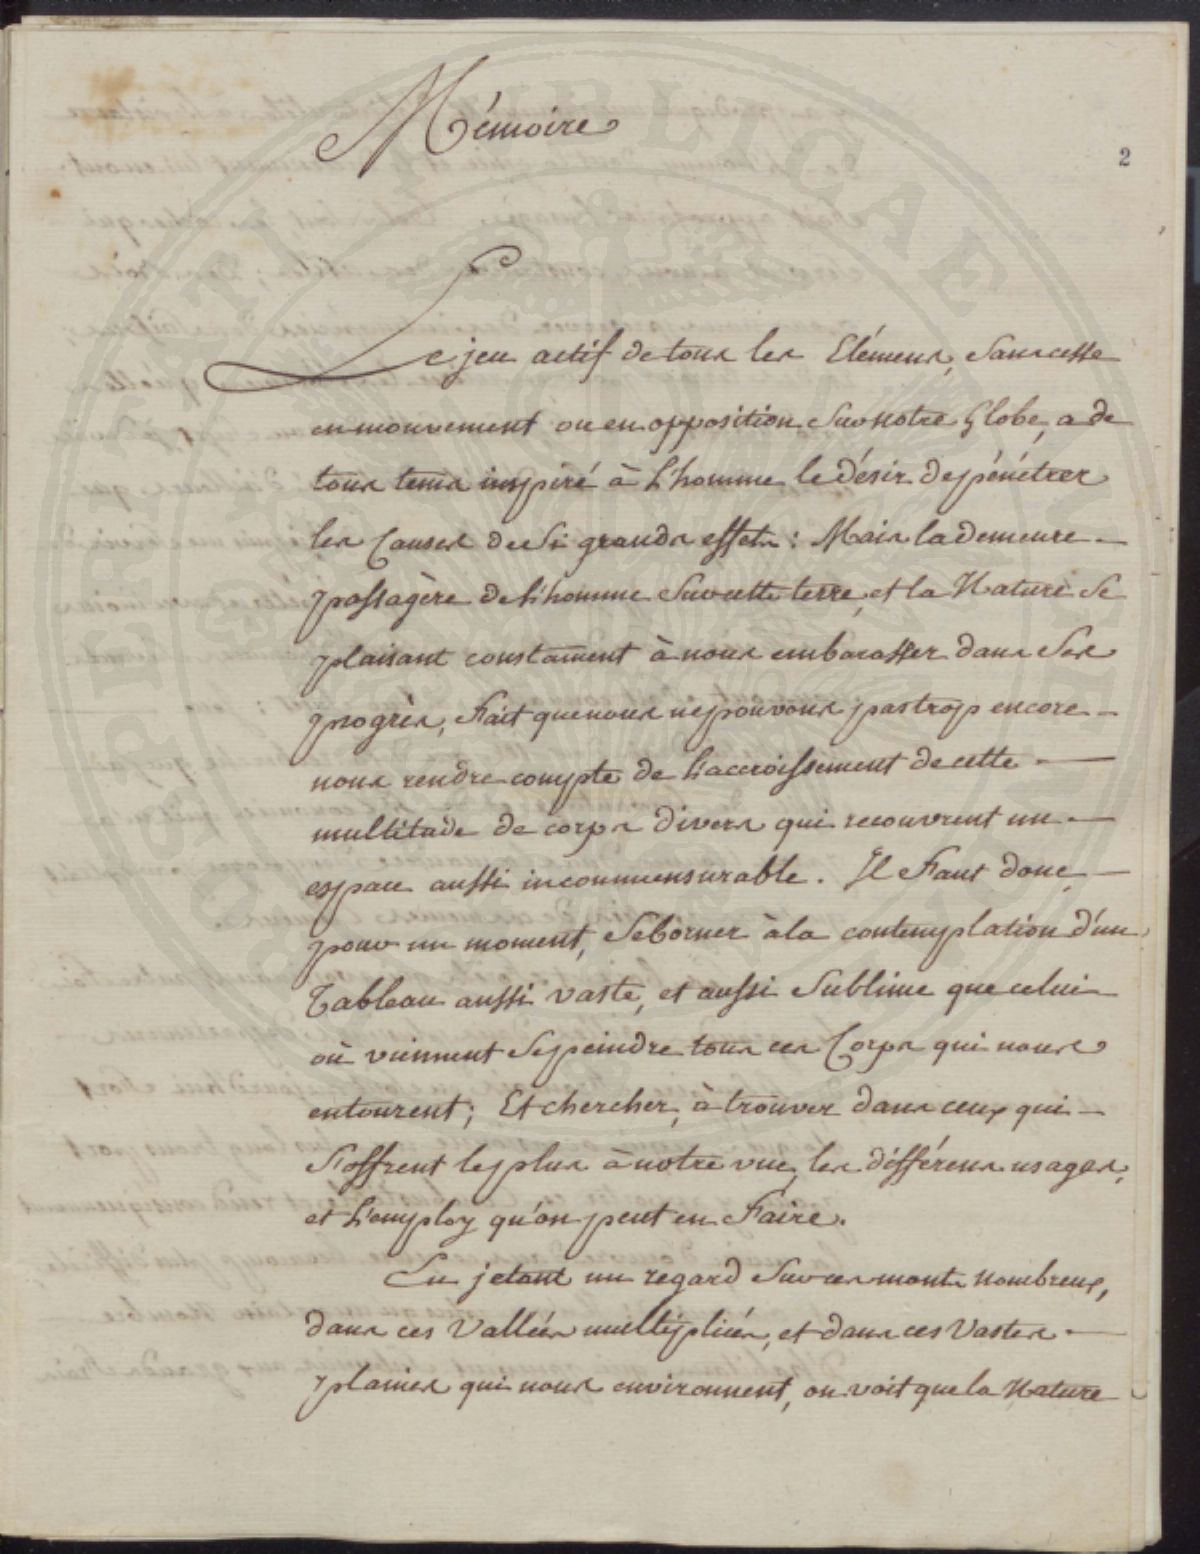 Mémoire
2
Le jeu actif de tous les Elémens, sans cesse
en mouvement ou en opposition sur notre Globe, a de
tous tems inspiré à l'homme le désir de pénétrer
les Causes de si grands effets : Mais la demeure
passagère de l'homme sur cette terre, et la Nature se
plaisant constament à nous embarasser dans ses
progrès, Fait que nous ne pouvons pas trop encore
nous rendre compte de l'accroissement de cette
multitude de corps divers qui recouvrent un
espace aussi incommensurable. Il Faut donc
pour un moment, se borner à la contemplation d'un
Tableau aussi vaste, et aussi sublime que celui
où viennent se peindre tous ces Corps qui nous
entourent; Et chercher, à trouver dans ceux qui
s'offrent le plus à notre vue, les différens usages,
et l'employ qu'on peut en Faire.
En jetant un regard sur ces monts nombreux,
dans ces Vallées multipliées, et dans ces Vastes
plaines qui nous environnent, on voit que la Nature